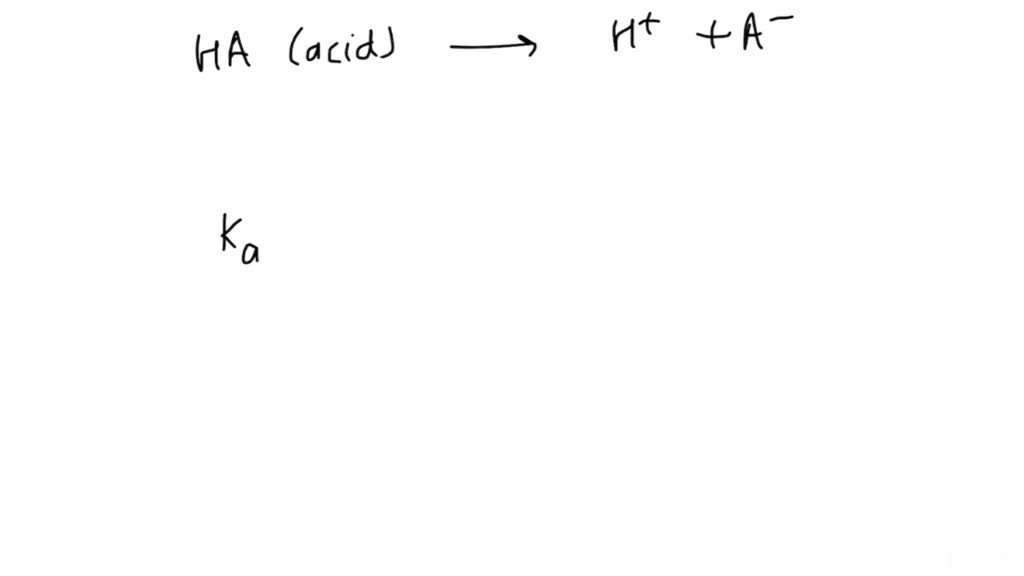 HA (acid) ⟶ H⁺ + A⁻
Kₐ